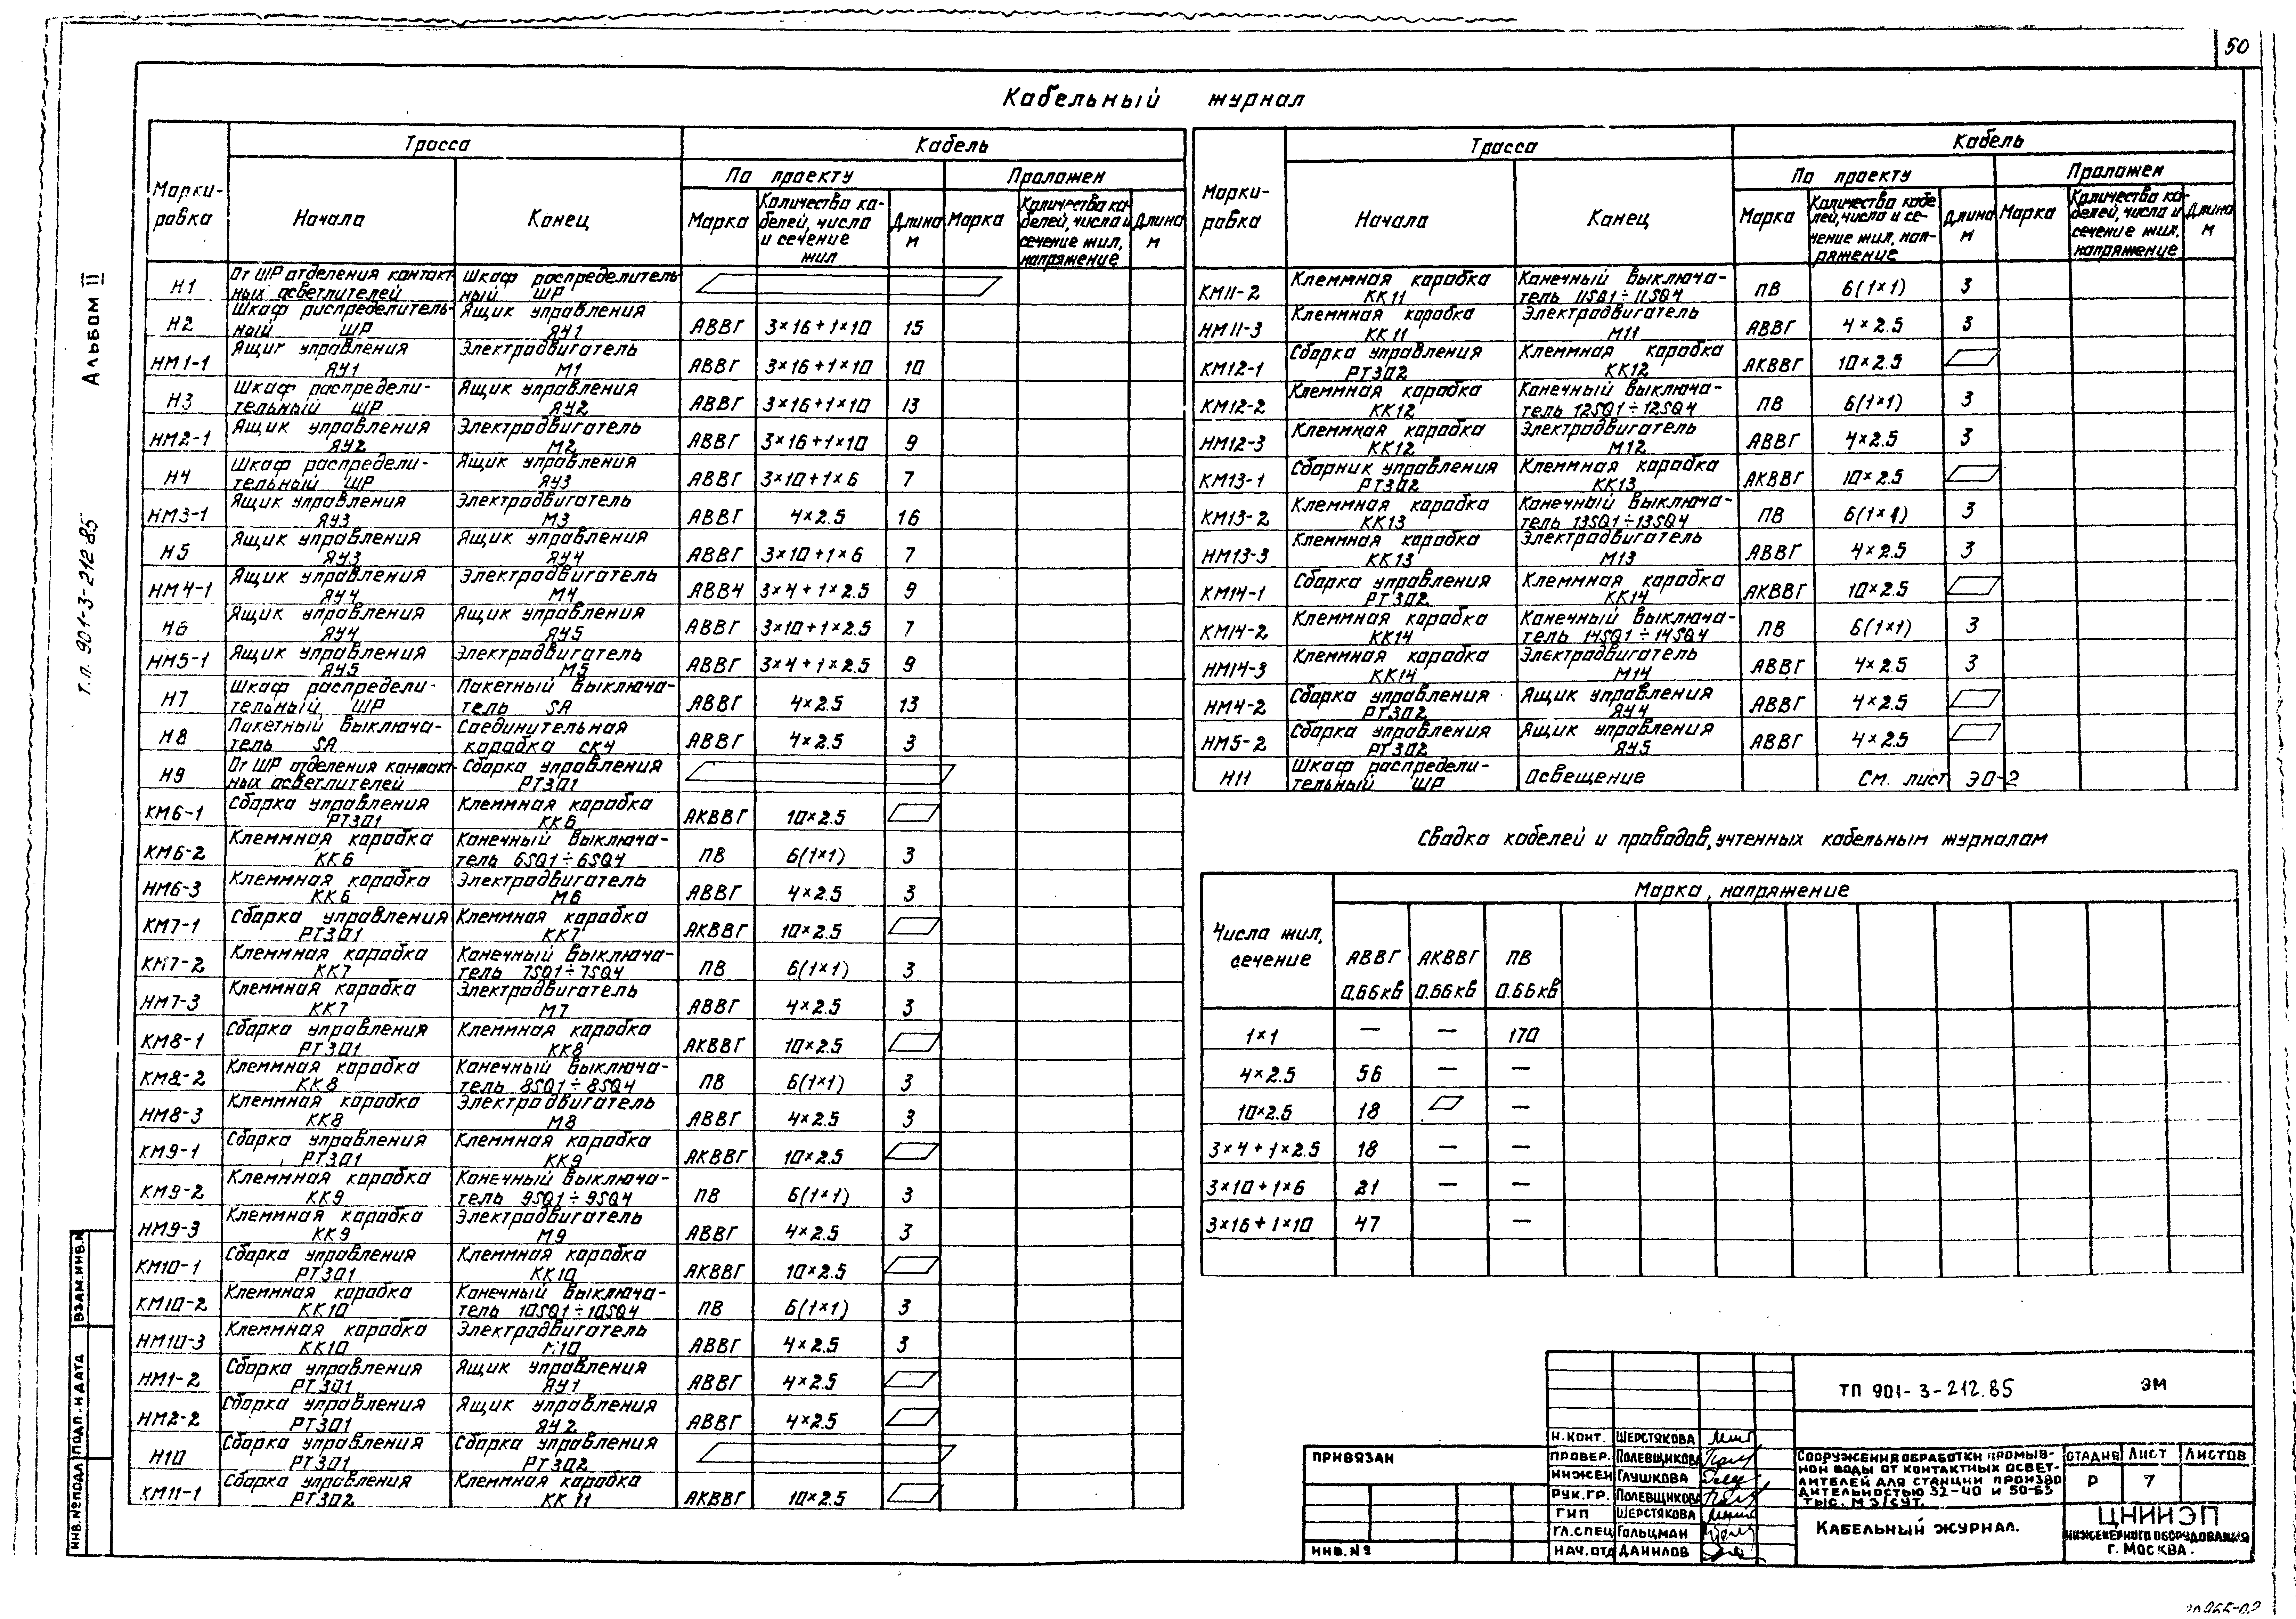 50
Кабельный журнал
Альбом II
т.п. 901-3-212 85
Марки-
ровка
Трасса
Кабель
Начало
Конец
По проекту
Проложен
Марка
Количество ка-
белей, число
и сечение
жил
Длина
м
Марка
Количество ка-
белей, число и
сечение жил,
напряжение
Длина
м
Н1 От ШР отделения контакт- Шкаф распределитель
ных осветлителей ный ШР
Н2 Шкаф распределитель- Ящик управления АВВГ 3×16+1×10 15
ный ШР ЯУ1
НМ1-1 Ящик управления Электродвигатель АВВГ 3×16+1×10 10
ЯУ1 М1
Н3 Шкаф распредели- Ящик управления АВВГ 3×16+1×10 13
тельный ШР ЯУ2
НМ2-1 Ящик управления Электродвигатель АВВГ 3×16+1×10 9
ЯУ2 М2
Н4 Шкаф распредели- Ящик управления АВВГ 3×10+1×6 7
тельный ШР ЯУ3
НМ3-1 Ящик управления Электродвигатель АВВГ 4×2.5 16
ЯУ3 М3
Н5 Ящик управления Ящик управления АВВГ 3×10+1×6 7
ЯУ3 ЯУ4
НМ4-1 Ящик управления Электродвигатель АВВ4 3×4+1×2.5 9
ЯУ4 М4
Н6 Ящик управления Ящик управления АВВГ 3×10+1×2.5 7
ЯУ4 ЯУ5
НМ5-1 Ящик управления Электродвигатель АВВГ 3×4+1×2.5 9
ЯУ5 М5
Н7 Шкаф распредели- Пакетный выключа- АВВГ 4×2.5 13
тельный ШР тель SA
Н8 Пакетный выключа- Соединительная АВВГ 4×2.5 3
тель SA коробка СК4
Н9 От ШР отделения контакт- Сборка управления
ных осветлителей РТ301
КМ6-1 Сборка управления Клеммная коробка АКВВГ 10×2.5
РТ301 КК6
КМ6-2 Клеммная коробка Конечный выключа- ПВ 6(1×1) 3
КК6 тель 6SQ1÷6SQ4
НМ6-3 Клеммная коробка Электродвигатель АВВГ 4×2.5 3
КК6 М6
КМ7-1 Сборка управления Клеммная коробка АКВВГ 10×2.5
РТ301 КК7
КМ7-2 Клеммная коробка Конечный выключа- ПВ 6(1×1) 3
КК7 тель 7SQ1÷7SQ4
НМ7-3 Клеммная коробка Электродвигатель АВВГ 4×2.5 3
КК7 М7
КМ8-1 Сборка управления Клеммная коробка АКВВГ 10×2.5
РТ301 КК8
КМ8-2 Клеммная коробка Конечный выключа- ПВ 6(1×1) 3
КК8 тель 8SQ1÷8SQ4
НМ8-3 Клеммная коробка Электродвигатель АВВГ 4×2.5 3
КК8 М8
КМ9-1 Сборка управления Клеммная коробка АКВВГ 10×2.5
РТ301 КК9
КМ9-2 Клеммная коробка Конечный выключа- ПВ 6(1×1) 3
КК9 тель 9SQ1÷9SQ4
НМ9-3 Клеммная коробка Электродвигатель АВВГ 4×2.5 3
КК9 М9
КМ10-1 Сборка управления Клеммная коробка АКВВГ 10×2.5
РТ301 КК10
КМ10-2 Клеммная коробка Конечный выключа- ПВ 6(1×1) 3
КК10 тель 10SQ1÷10SQ4
НМ10-3 Клеммная коробка Электродвигатель АВВГ 4×2.5 3
КК10 М10
НМ1-2 Сборка управления Ящик управления АВВГ 4×2.5
РТ301 ЯУ1
НМ2-2 Сборка управления Ящик управления АВВГ 4×2.5
РТ301 ЯУ2
Н10 Сборка управления Сборка управления
РТ301 РТ302
КМ11-1 Сборка управления Клеммная коробка АКВВГ 10×2.5
РТ302 КК11
Марки-
ровка
Трасса
Кабель
Начало
Конец
По проекту
Проложен
Марка
Количество кабе
лей, число и се-
чение жил, нап-
ряжение
Длина
м
Марка
Количество ка-
белей, число и
сечение жил,
напряжение
Длина
м
КМ11-2 Клеммная коробка Конечный выключа- ПВ 6(1×1) 3
КК11 тель 11SQ1÷11SQ4
НМ11-3 Клеммная коробка Электродвигатель АВВГ 4×2.5 3
КК11 М11
КМ12-1 Сборка управления Клеммная коробка АКВВГ 10×2.5
РТ302 КК12
КМ12-2 Клеммная коробка Конечный выключа- ПВ 6(1×1) 3
КК12 тель 12SQ1÷12SQ4
НМ12-3 Клеммная коробка Электродвигатель АВВГ 4×2.5 3
КК12 М12
КМ13-1 Сборник управления Клеммная коробка АКВВГ 10×2.5
РТ302 КК13
КМ13-2 Клеммная коробка Конечный выключа- ПВ 6(1×1) 3
КК13 тель 13SQ1÷13SQ4
НМ13-3 Клеммная коробка Электродвигатель АВВГ 4×2.5 3
КК13 М13
КМ14-1 Сборка управления Клеммная коробка АКВВГ 10×2.5
РТ302 КК14
КМ14-2 Клеммная коробка Конечный выключа- ПВ 6(1×1) 3
КК14 тель 14SQ1÷14SQ4
НМ14-3 Клеммная коробка Электродвигатель АВВГ 4×2.5 3
КК14 М14
НМ4-2 Сборка управления Ящик управления АВВГ 4×2.5
РТ302 ЯУ4
НМ5-2 Сборка управления Ящик управления АВВГ 4×2.5
РТ302 ЯУ5
Н11 Шкаф распредели- Освещение См. лист ЭО-2
тельный ШР
Сводка кабелей и проводов, учтенных кабельным журналом
Число жил,
сечение
Марка, напряжение
АВВГ АКВВГ ПВ
0.66кв 0.66кв 0.66кв
1×1 — — 170
4×2.5 56 — —
10×2.5 18 —
3×4+1×2.5 18 — —
3×10+1×6 21 — —
3×16+1×10 47 —
ВЗАМ.ИНВ.№
ПОДП. И ДАТА
ИНВ.№ПОДЛ
ПРИВЯЗАН
ИНВ.№
Н.КОНТ. ШЕРСТЯКОВА
ПРОВЕР. ПОЛЕВЩИКОВА
ИНЖЕН ГЛУШКОВА
РУК.ГР. ПОЛЕВЩИКОВА
ГИП ШЕРСТЯКОВА
ГЛ.СПЕЦ ГОЛЬЦМАН
НАЧ.ОТД ДАНИЛОВ
ТП 901-3-212.85 ЭМ
СООРУЖЕНИЯ ОБРАБОТКИ ПРОМЫВ-
НОЙ ВОДЫ ОТ КОНТАКТНЫХ ОСВЕТ-
ЛИТЕЛЕЙ ДЛЯ СТАНЦИИ ПРОИЗВО
ДИТЕЛЬНОСТЬЮ 32-40 И 50-63
ТЫС. М3/СУТ.
СТАДИЯ ЛИСТ ЛИСТОВ
Р 7
КАБЕЛЬНЫЙ ЖУРНАЛ.
ЦНИИЭП
ИНЖЕНЕРНОГО ОБОРУДОВАНИЯ
Г. МОСКВА.